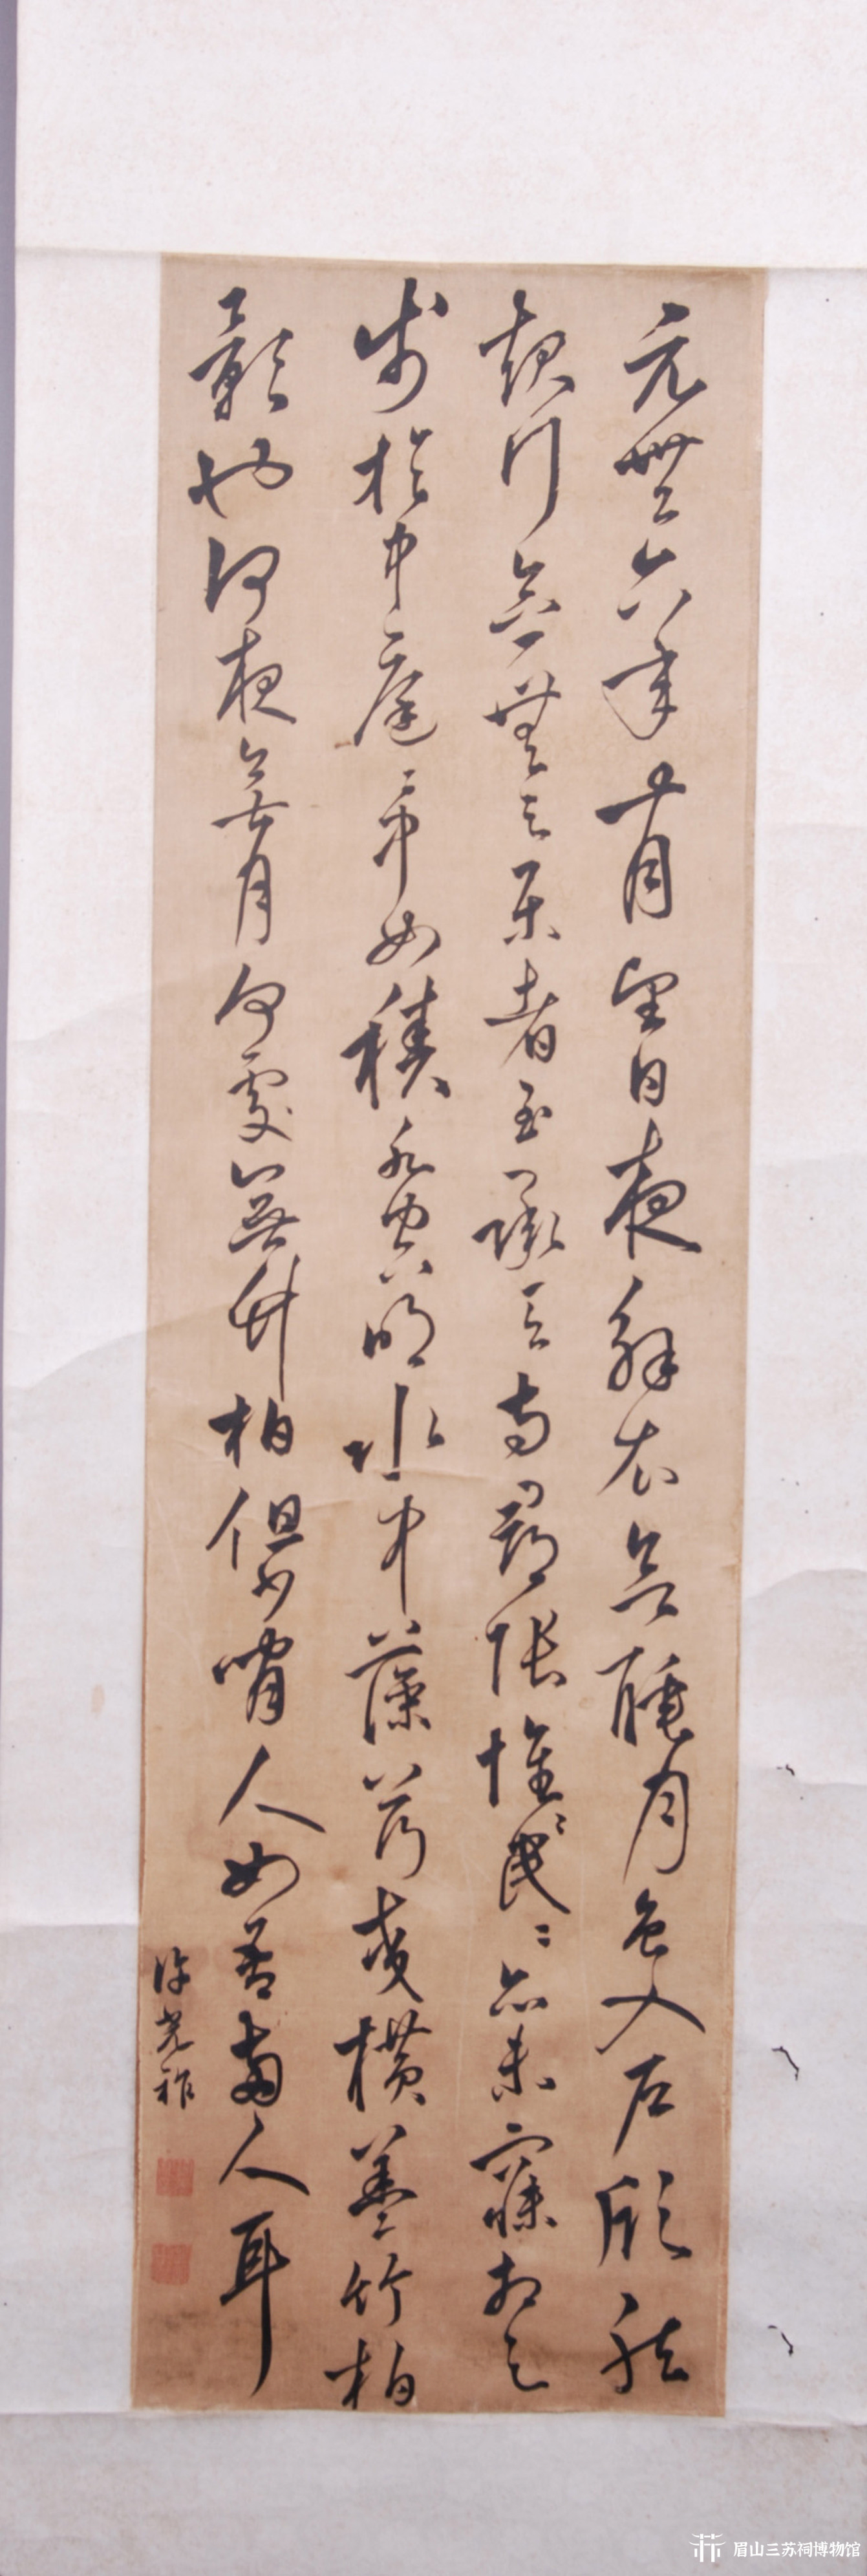 元豐六年十月望日夜解衣欲睡月色入户欣然
起行念無与樂者至承天寺尋張懷〻民〻亦未寢相与
步於中庭〻下如積水空明水中藻荇交橫蓋竹柏
影也何夜無月何處無竹柏但少閒人如吾兩人耳
許堯祚
眉山三苏祠博物馆